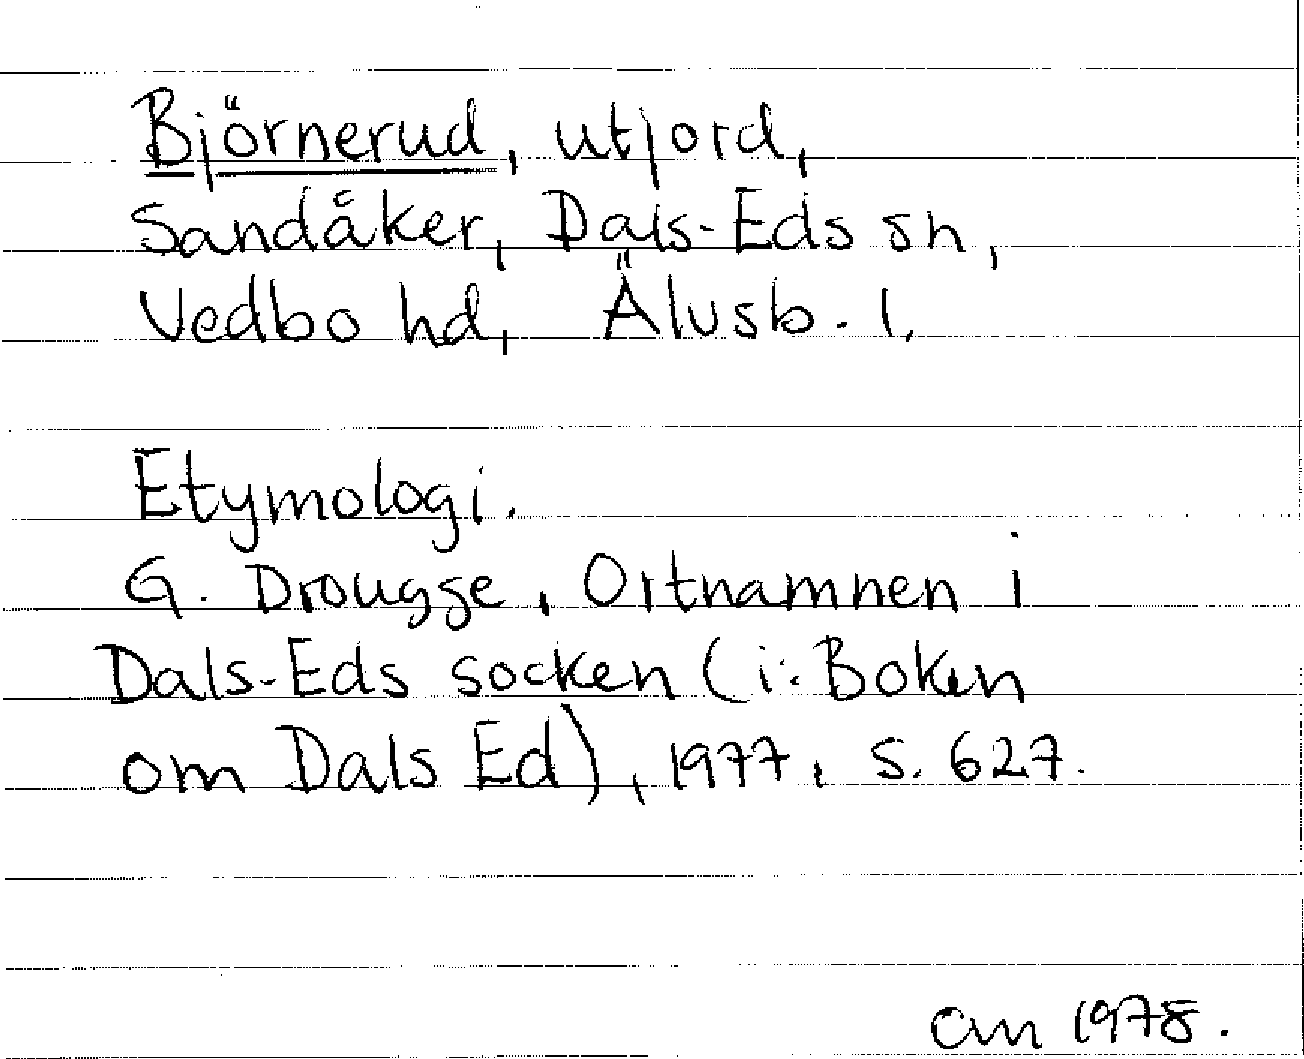 Björnerud, utjord,
Sandåker, Dals-Eds sn,
Vedbo hd, Älvsb. l.
Etymologi.
G. Drougge, Ortnamnen i
Dals-Eds socken (i: Boken
om Dals Ed), 1977, s. 627.
1978.